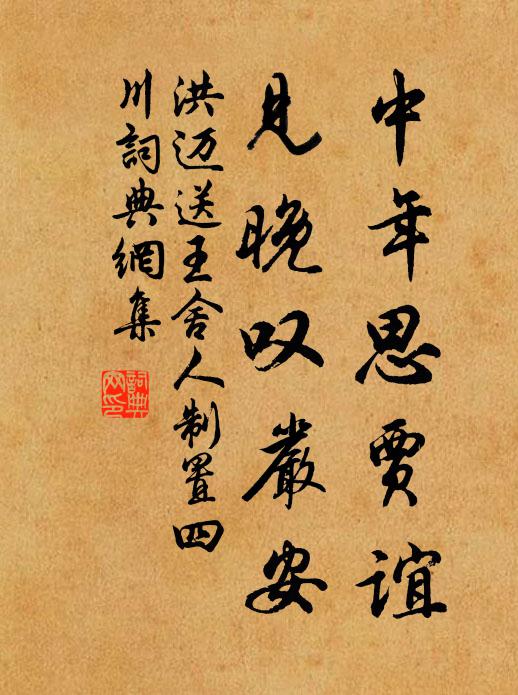 中年思賈誼
見晚叹嚴安
洪迈送王舍人制置四
川詞典網集
詞典
网印